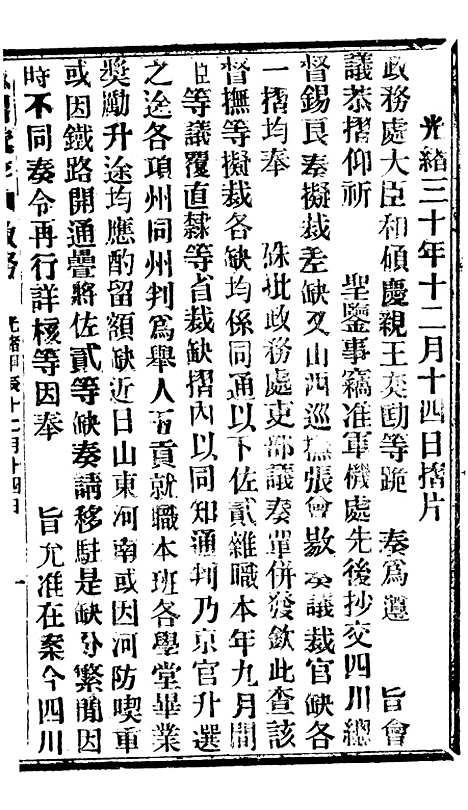 光緒三十年十二月十四日摺片
政務處大臣和碩慶親王奕劻等跪　奏爲遵　旨會
議恭摺仰祈　聖鑒事竊准軍機處先後抄交四川總
督錫良奏擬裁差缺又山西巡撫張曾敭奏議裁官缺各
一摺均奉　硃批政務處吏部議奏單併發欽此查該
督撫等擬裁各缺均係同通以下佐貳雜職本年九月間
臣等議覆直隸等省裁缺摺內以同知通判乃京官升選
之途各項州同州判爲舉人五貢就職本班各學堂畢業
奬勵升途均應酌留額缺近日山東河南或因河防喫重
或因鐵路開通疊將佐貳等缺奏請移駐是缺分繁簡因
時不同奏令再行詳核等因奉　旨允准在案今四川
光緒甲辰十二月十四日
一